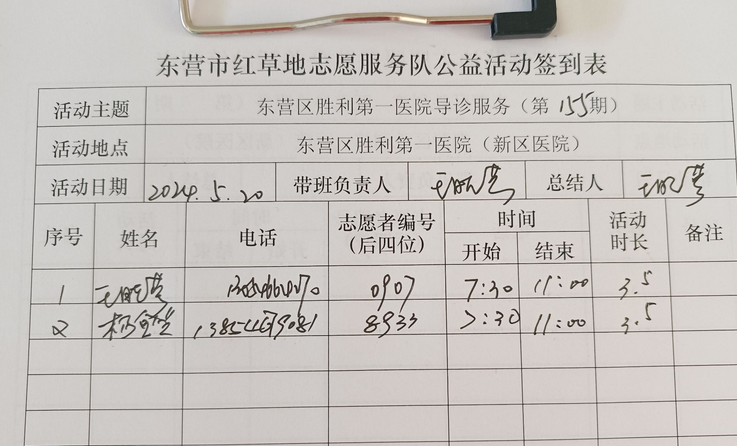 东营市红草地志愿服务队公益活动签到表
活动主题 东营区胜利第一医院导诊服务（第155期）
活动地点 东营区胜利第一医院（新区医院）
活动日期 2024.5.20 带班负责人 总结人
序号 姓名 电话 志愿者编号（后四位） 时间 开始 结束 活动时长 备注
1 0907 7:30 11:00 3.5
2 8933 7:30 11:00 3.5